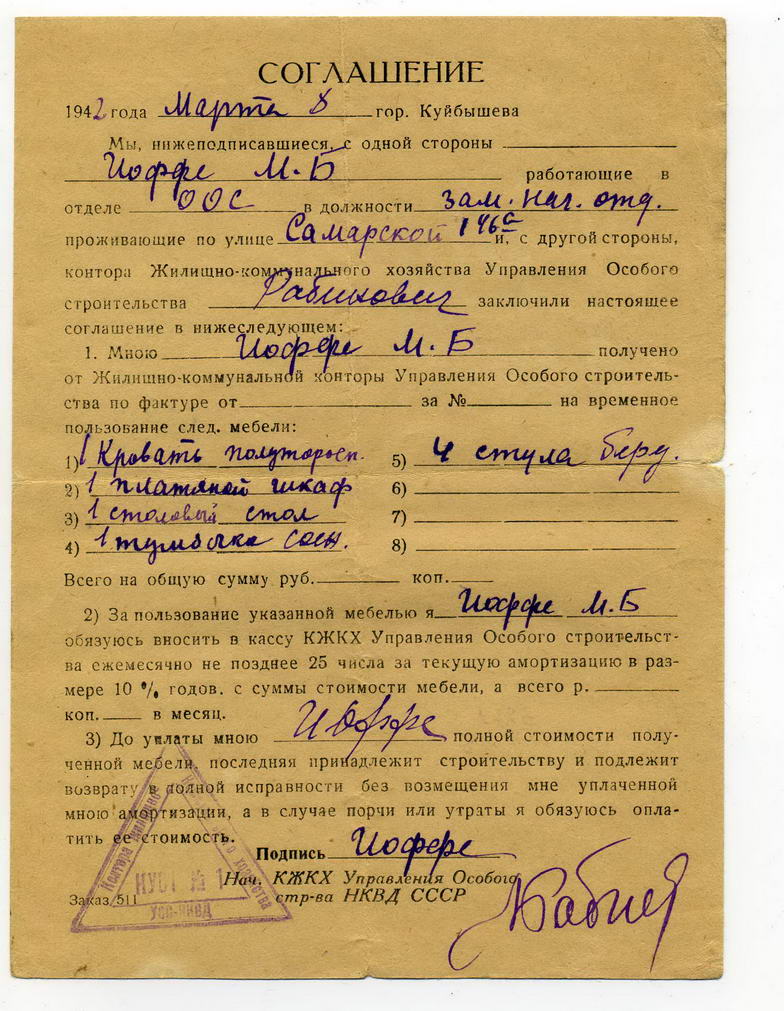 СОГЛАШЕНИЕ
1942 года Марта 8 гор. Куйбышева
Мы, нижеподписавшиеся, с одной стороны
Иоффе М.Б работающие в
отделе ООС в должности зам. нач. отд.
проживающие по улице Самарской 146а и, с другой стороны,
контора Жилищно-коммунального хозяйства Управления Особого
строительства Рабинович заключили настоящее
соглашение в нижеследующем:
1. Мною Иоффе М.Б получено
от Жилищно-коммунальной конторы Управления Особого строитель-
ства по фактуре от за № на временное
пользование след. мебели:
1) 1 Кровать полутороси. 5) 4 стула беру.
2) 1 платяной шкаф 6)
3) 1 столовый стол 7)
4) 1 тумбочка сосн. 8)
Всего на общую сумму руб. коп.
2) За пользование указанной мебелью я Иоффе М.Б
обязуюсь вносить в кассу КЖКХ Управления Особого строительст-
ва ежемесячно не позднее 25 числа за текущую амортизацию в раз-
мере 10 % годов. с суммы стоимости мебели, а всего р.
коп. в месяц.
3) До уплаты мною Иоффе полной стоимости полу-
ченной мебели, последняя принадлежит строительству и подлежит
возврату в полной исправности без возмещения мне уплаченной
мною амортизации, а в случае порчи или утраты я обязуюсь опла-
тить ее стоимость.
Подпись Иоффе
Нач. КЖКХ Управления Особого
стр-ва НКВД СССР
Заказ 511
Контора Жилищно
хозяйства
КУСТ № 1
УОС-НКВД